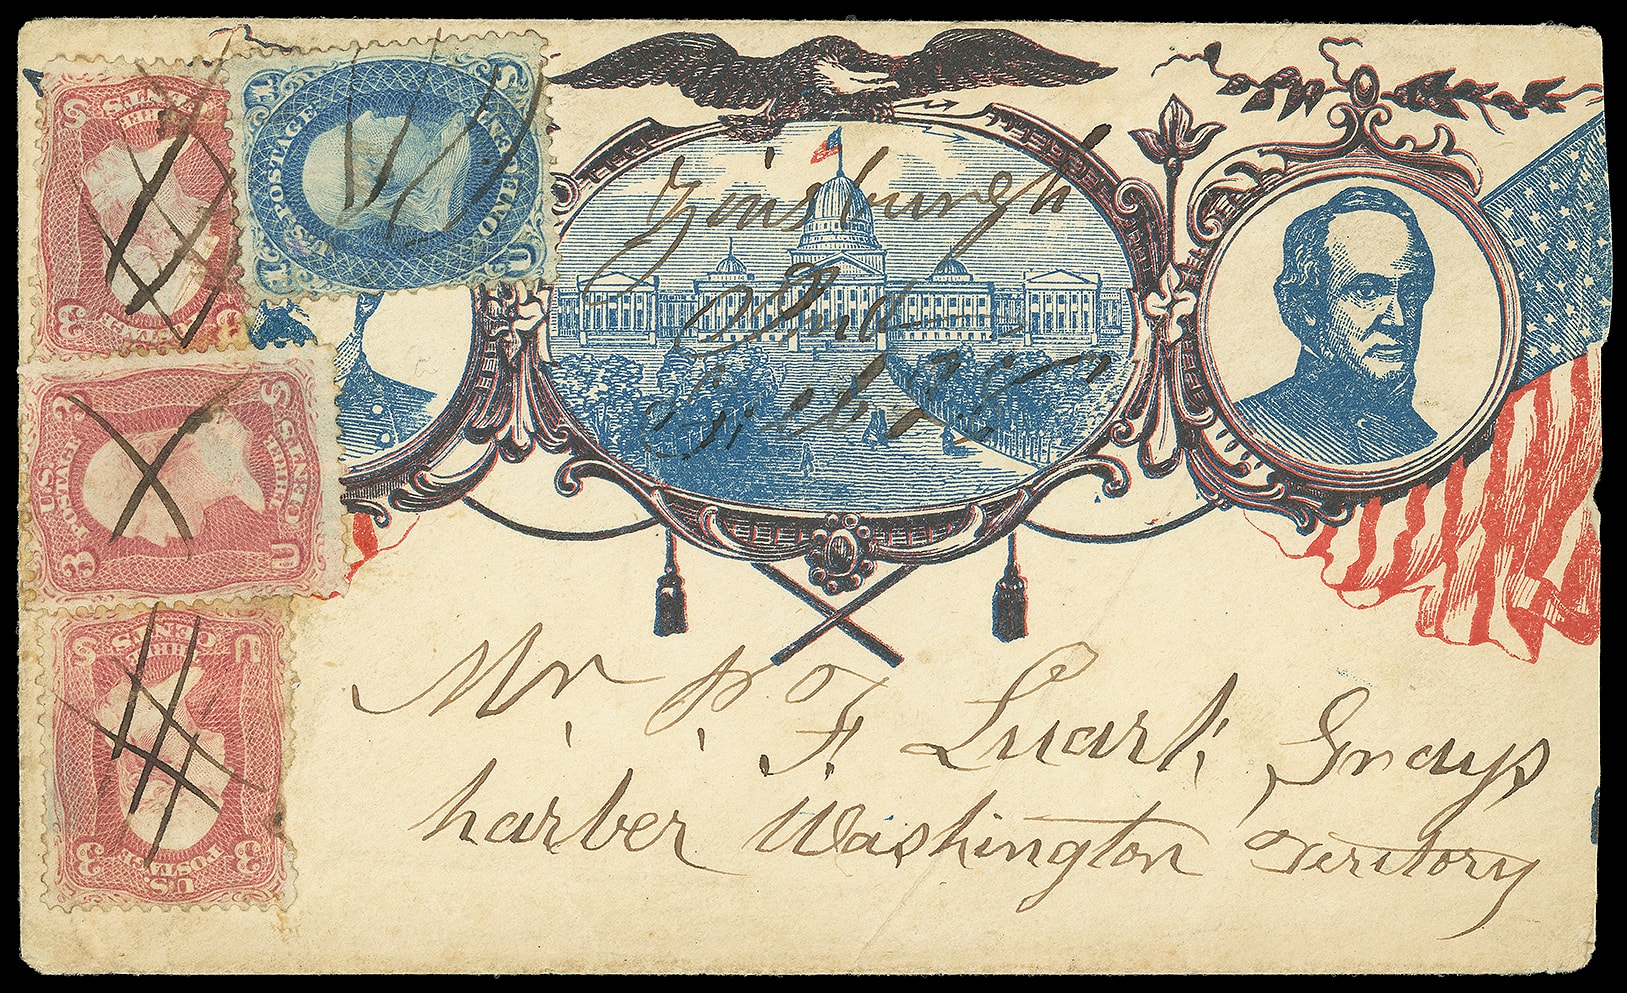 3 3 U S
U.S. POSTAGE
THREE CENTS
1 1 U S
U.S. POSTAGE
ONE CENT
3 3 U S
U.S. POSTAGE
THREE CENTS
3 3 U S
U.S. POSTAGE
THREE CENTS
Ind
Mr. P. F. Luark, Grays
harber Washington Territory